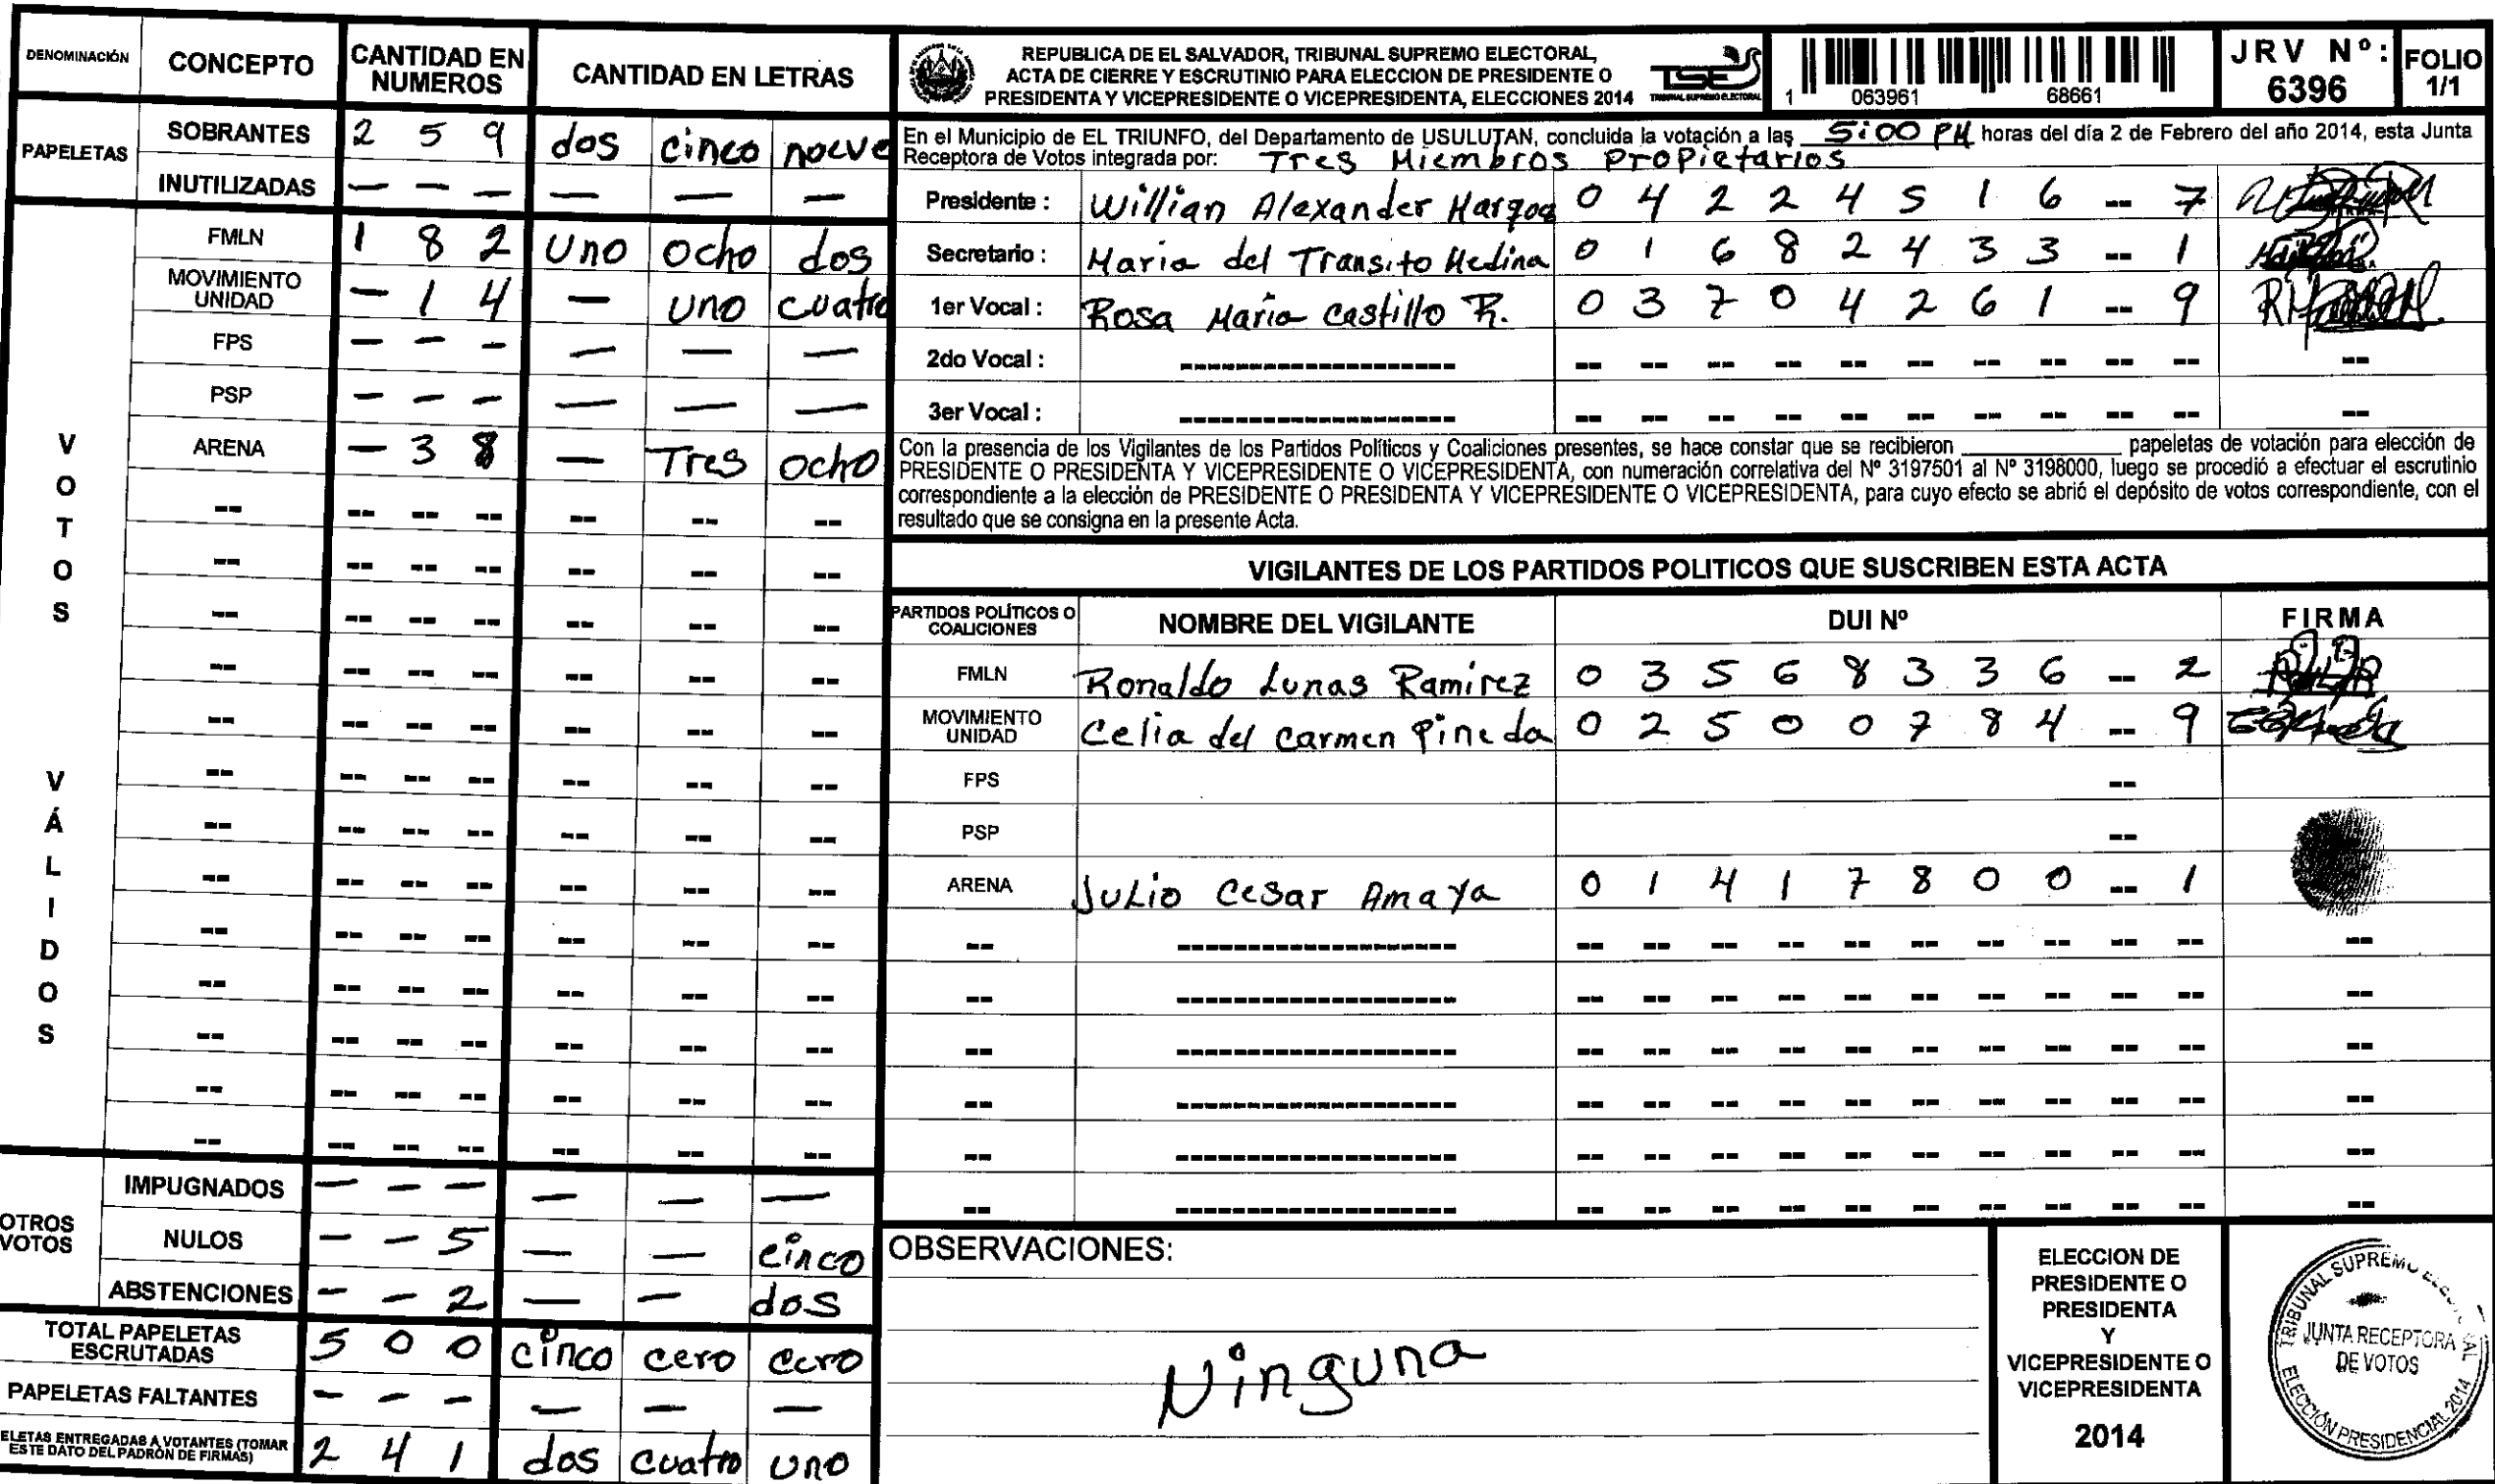 DENOMINACIÓN CONCEPTO CANTIDAD EN NUMEROS CANTIDAD EN LETRAS
PAPELETAS
SOBRANTES 2 5 9 dos cinco nueve
INUTILIZADAS — — — — — —
VOTOS VÁLIDOS
FMLN 1 8 2 uno ocho dos
MOVIMIENTO UNIDAD — 1 4 — uno cuatro
FPS — — — — — —
PSP — — — — — —
ARENA — 3 8 — Tres ocho
-- -- -- -- -- -- --
-- -- -- -- -- -- --
-- -- -- -- -- -- --
-- -- -- -- -- -- --
-- -- -- -- -- -- --
-- -- -- -- -- -- --
-- -- -- -- -- -- --
-- -- -- -- -- -- --
-- -- -- -- -- -- --
-- -- -- -- -- -- --
-- -- -- -- -- -- --
-- -- -- -- -- -- --
-- -- -- -- -- -- --
OTROS VOTOS
IMPUGNADOS — — — — — —
NULOS — — 5 — — cinco
ABSTENCIONES — — 2 — — dos
TOTAL PAPELETAS ESCRUTADAS 5 0 0 cinco cero cero
PAPELETAS FALTANTES — — — — — —
ELETAS ENTREGADAS A VOTANTES (TOMAR
ESTE DATO DEL PADRÓN DE FIRMAS) 2 4 1 dos cuatro uno
REPUBLICA DE EL SALVADOR, TRIBUNAL SUPREMO ELECTORAL,
ACTA DE CIERRE Y ESCRUTINIO PARA ELECCION DE PRESIDENTE O
PRESIDENTA Y VICEPRESIDENTE O VICEPRESIDENTA, ELECCIONES 2014
TSE
TRIBUNAL SUPREMO ELECTORAL
1 063961 68661
JRV Nº: 6396
FOLIO 1/1
En el Municipio de EL TRIUNFO, del Departamento de USULUTAN, concluida la votación a las 5:00 PM horas del día 2 de Febrero del año 2014, esta Junta
Receptora de Votos integrada por: Tres Miembros Propietarios
Presidente : Willian Alexander 0 4 2 2 4 5 1 6 -- 7
Secretario : Maria del Transito Medina 0 1 6 8 2 4 3 3 -- 1
1er Vocal : Rosa Maria Castillo R. 0 3 7 0 4 2 6 1 -- 9
2do Vocal : -------------------- -- -- -- -- -- -- -- -- -- -- --
3er Vocal : -------------------- -- -- -- -- -- -- -- -- -- -- --
Con la presencia de los Vigilantes de los Partidos Políticos y Coaliciones presentes, se hace constar que se recibieron ________ papeletas de votación para elección de
PRESIDENTE O PRESIDENTA Y VICEPRESIDENTE O VICEPRESIDENTA, con numeración correlativa del Nº 3197501 al Nº 3198000, luego se procedió a efectuar el escrutinio
correspondiente a la elección de PRESIDENTE O PRESIDENTA Y VICEPRESIDENTE O VICEPRESIDENTA, para cuyo efecto se abrió el depósito de votos correspondiente, con el
resultado que se consigna en la presente Acta.
VIGILANTES DE LOS PARTIDOS POLITICOS QUE SUSCRIBEN ESTA ACTA
PARTIDOS POLÍTICOS O COALICIONES NOMBRE DEL VIGILANTE DUI Nº FIRMA
FMLN Ronaldo Lunas Ramirez 0 3 5 6 8 3 3 6 -- 2
MOVIMIENTO UNIDAD Celia del Carmen Pineda 0 2 5 0 0 7 8 4 -- 9
FPS --
PSP --
ARENA Julio Cesar Amaya 0 1 4 1 7 8 0 0 -- 1
-- -------------------- -- -- -- -- -- -- -- -- -- -- --
-- -------------------- -- -- -- -- -- -- -- -- -- -- --
-- -------------------- -- -- -- -- -- -- -- -- -- -- --
-- -------------------- -- -- -- -- -- -- -- -- -- -- --
-- -------------------- -- -- -- -- -- -- -- -- -- -- --
-- -------------------- -- -- -- -- -- -- -- -- -- -- --
OBSERVACIONES:
Ninguna
ELECCION DE
PRESIDENTE O
PRESIDENTA
Y
VICEPRESIDENTE O
VICEPRESIDENTA
2014
TRIBUNAL SUPREMO
JUNTA RECEPTORA
DE VOTOS
ELECCIÓN PRESIDENCIAL 2014